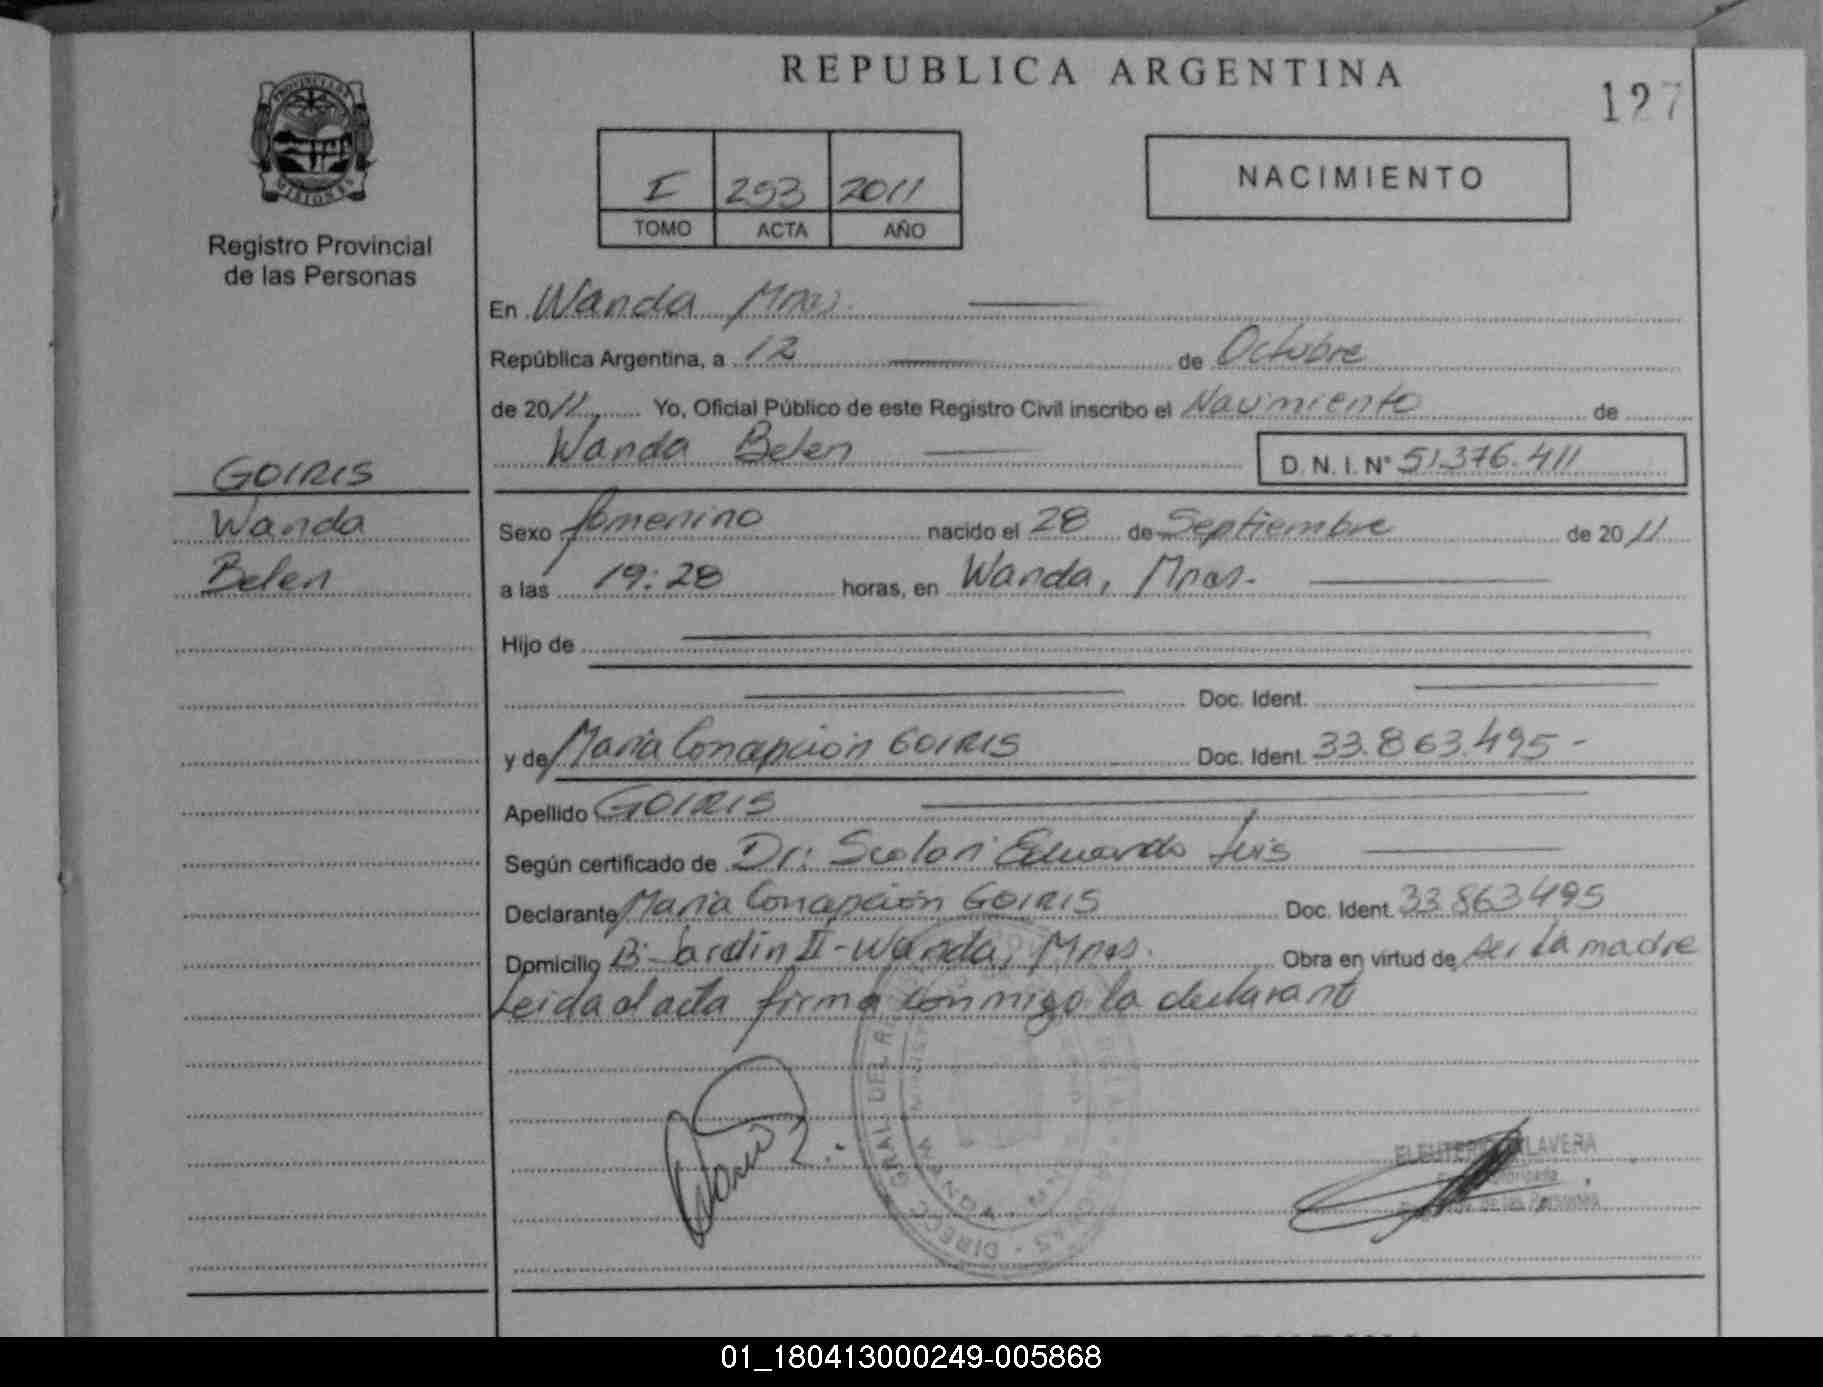 REPUBLICA ARGENTINA
127
PROVINCIA DE
MISIONES
Registro Provincial
de las Personas
I 253 2011
TOMO ACTA AÑO
NACIMIENTO
En Wanda Mnes.
República Argentina, a 12 de Octubre
de 2011 Yo, Oficial Público de este Registro Civil inscribo el Nacimiento de
Wanda Belen D.N.I.Nº 51.376.411
GOIRIS
Wanda
Belen
Sexo femenino nacido el 28 de Septiembre de 2011
a las 19:28 horas, en Wanda, Mnes.
Hijo de
Doc. Ident.
y de Maria Concepción GOIRIS Doc. Ident. 33.863.495-
Apellido GOIRIS
Según certificado de Dr: Scolari Eduardo Luis
Declarante Maria Concepción GOIRIS Doc. Ident. 33.863.495
Domicilio B: Jardin II - Wanda, Mnes. Obra en virtud de ser la madre
Leida el acta firma conmigo la declarant
ELEUTERIO
de las Personas
01_180413000249-005868